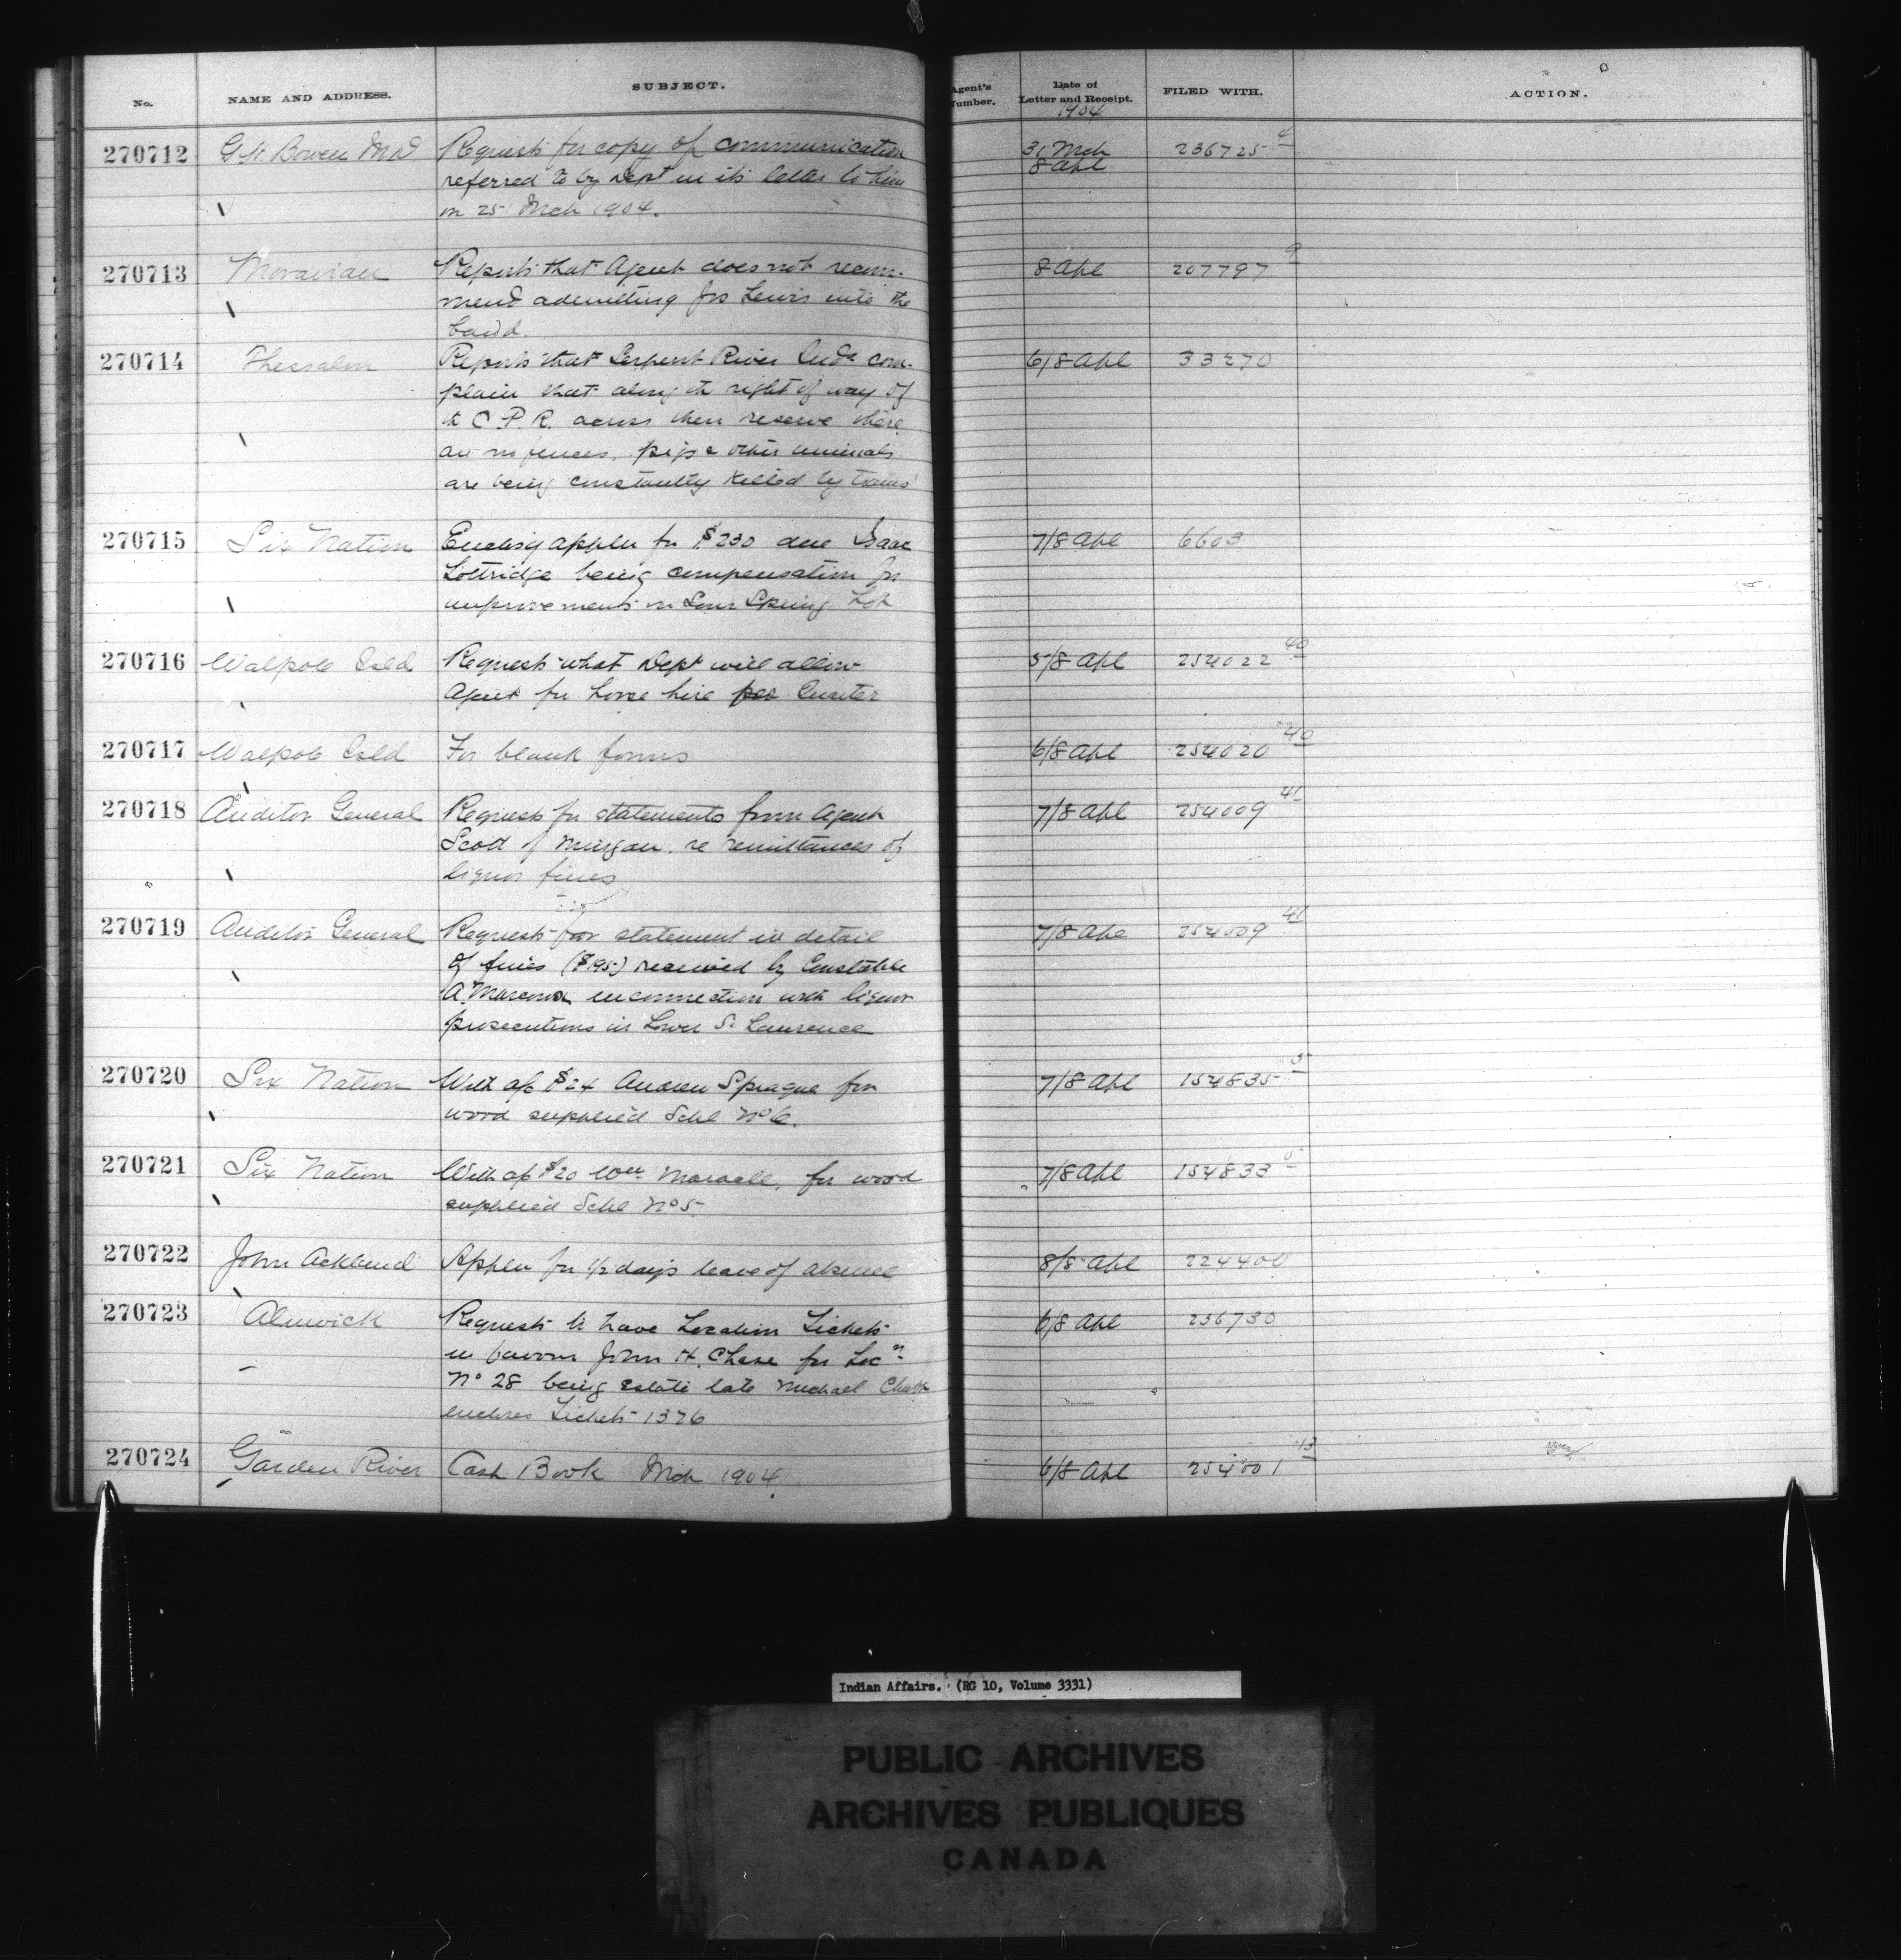 No.
NAME AND ADDRESS.
SUBJECT.
Agent's Number.
Date of Letter and Receipt.
1904
FILED WITH.
ACTION.
270712 G.H. Bowen MD Requests for copy of communication 31 Mch 236725 4
referred to by Dept in its letter to him 8 Apl
on 25 Mch 1904.
270713 Moravian Reports that Agent does not recom- 8 Apl 207797 9
mend admitting Jos Lewis into the
band.
270714 Thessalon Reports that Serpent River Inds com- 6/8 Apl 33270
plain that along th right of way of
th C.P.R. across their reserve there
are no fences, pigs & other animals
are being constantly killed by trains
270715 Six Nation Encls'g appln for $230 due Isaac 7/8 Apl 6603
Lottridge being compensation for
improvements on Sour Spring Lot
270716 Walpole Isld Requests what Dept will allow 5/8 Apl 254022 40
Agent for horse hire per Quarter
270717 Walpole Isld For blank forms 6/8 Apl 254020 40
270718 Auditor General Requests for statements from Agent 7/8 Apl 254009 41
Scott of Mingan, re remittances of
liquor fines
270719 Auditor General Requests for statement in detail 7/8 Apl 254009 41
of fines ($195) received by Constable
A. in connection with liquor
prosecutions in Lower St Lawrence
270720 Six Nation With a/c $24 Andrew Sprague for 7/8 Apl 154835 5
wood supplied Schl No 6.
270721 Six Nation With a/c $20 Wm for wood 7/8 Apl 154833 5
supplied Schl No 5
270722 John Ackland Appln for 1/2 days leave of absence 8/8 Apl 224400
270723 Alnwick Requests to have Location Tickets 6/8 Apl 236730
in favour John H. Chase for Locn
No 28 being estate late Michael Chase
encloses Tickets 1376
270724 Garden River Cash Book Mch 1904. 6/8 Apl 254001 13
Indian Affairs. (RG 10, Volume 3331)
PUBLIC ARCHIVES
ARCHIVES PUBLIQUES
CANADA